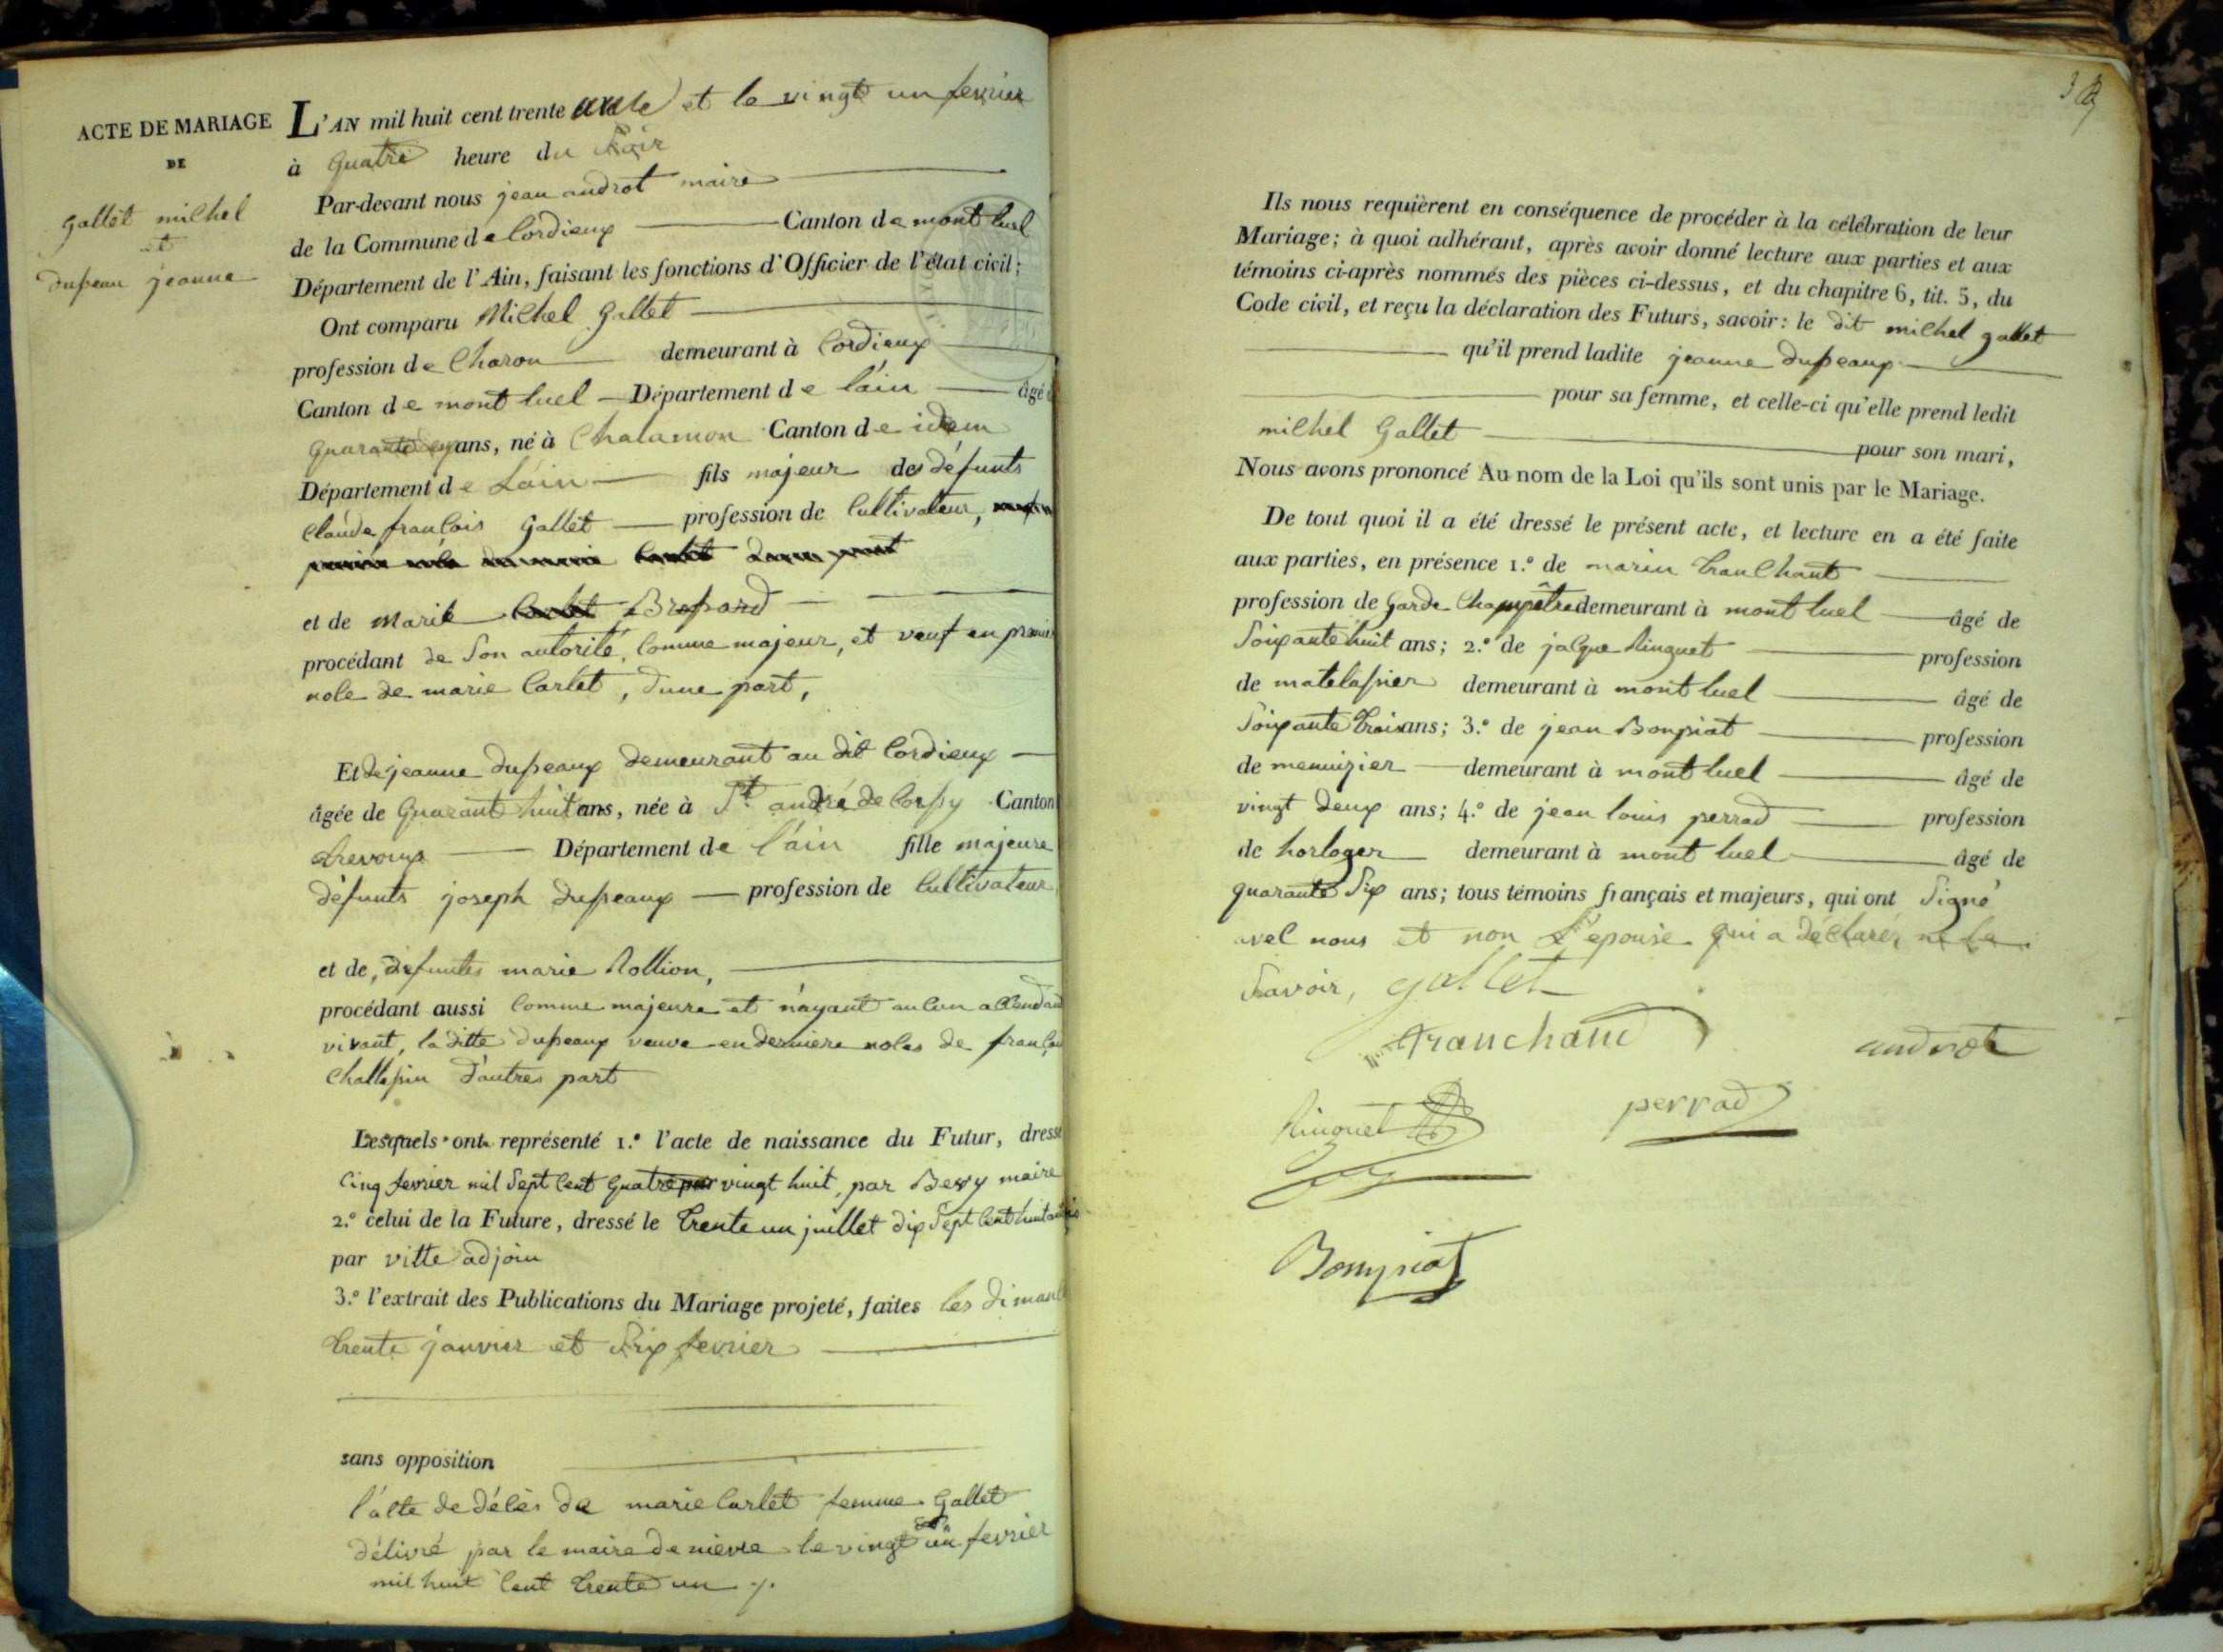 ACTE DE MARIAGE
DE
gallet michel
et
dupeau jeanne
L'AN mil huit cent trente et le vingt un fevrier
à quatre heure du soir
Par-devant nous jean androt maire
de la Commune de Cordieux Canton de montluel
Département de l'Ain, faisant les fonctions d'Officier de l'état civil;
Ont comparu Michel Gallet
profession de Charon demeurant à Cordieux
Canton de montluel Département de l'áin âgé
quarante ans, né à Chalamon Canton de idem
Département de L'áin fils majeur des défunts
Claude francois Gallet profession de Cultivateur,
et de Marie
procédant de son autorité, comme majeur, et veuf en
nole de marie Carlet, dune part,
Et de jeanne dupeaux demeurant au dit Cordieux
âgée de quarant huit ans, née à St andré de Corsy Canton
trevoux Département de l'áin fille majeure
défunts joseph dupeaux profession de Cultivateur
et de, défuntes marie Rollion,
procédant aussi comme majeure et n'ayant aucun
vivant, la ditte dupeaux veuve en derniere noles de
d'autres part
Lesquels ont représenté 1.º l'acte de naissance du Futur, dressé
Cinq fevrier mil sept cent quatre vingt huit, par maire
2.º celui de la Future, dressé le trente un juillet dix sept cent
par vitte adjoin
3.º l'extrait des Publications du Mariage projeté, faites les dimanc
trente janvier et six fevrier
sans opposition
l'acte de décès de marie Carlet femme Gallet
délivré par le maire de le vingt un fevrier
mil huit cent trente un
Ils nous requièrent en conséquence de procéder à la célébration de leur
Mariage; à quoi adhérant, après avoir donné lecture aux parties et aux
témoins ci-après nommés des pièces ci-dessus, et du chapitre 6, tit. 5, du
Code civil, et reçu la déclaration des Futurs, savoir: le dit michel gallet
qu'il prend ladite jeanne dupeaux
pour sa femme, et celle-ci qu'elle prend ledit
michel Gallet pour son mari,
Nous avons prononcé Au nom de la Loi qu'ils sont unis par le Mariage.
De tout quoi il a été dressé le présent acte, et lecture en a été faite
aux parties, en présence 1.º de marin tranchant
profession de garde Champêtre demeurant à montluel âgé de
soixante huit ans; 2.º de jacque Rinquet profession
de matelassier demeurant à montluel âgé de
soixante trois ans; 3.º de jean Bonpiat profession
de menuizier demeurant à montluel âgé de
vingt deux ans; 4.º de jean louis perrad profession
de horloger demeurant à montluel âgé de
quarante six ans; tous témoins français et majeurs, qui ont signé
avec nous et non l'epouse qui a déclarér ne le
savoir, gallet
tranchant androt
Rinquet perrad
Bonpiat